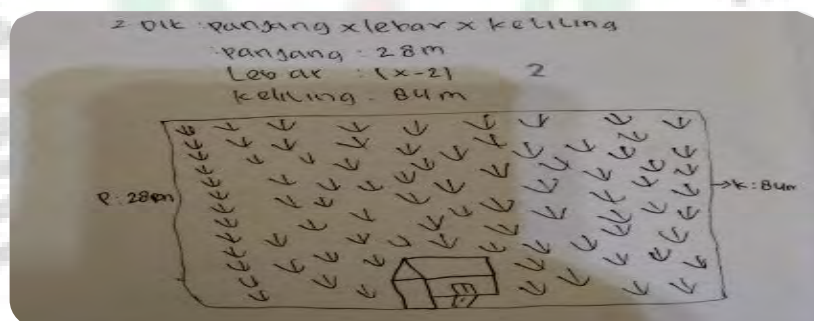 2 Dik : panjang x lebar x keliling
: panjang : 28m
Lebar : (x-2) 2
keliling : 84m
P : 28m
→K : 84m